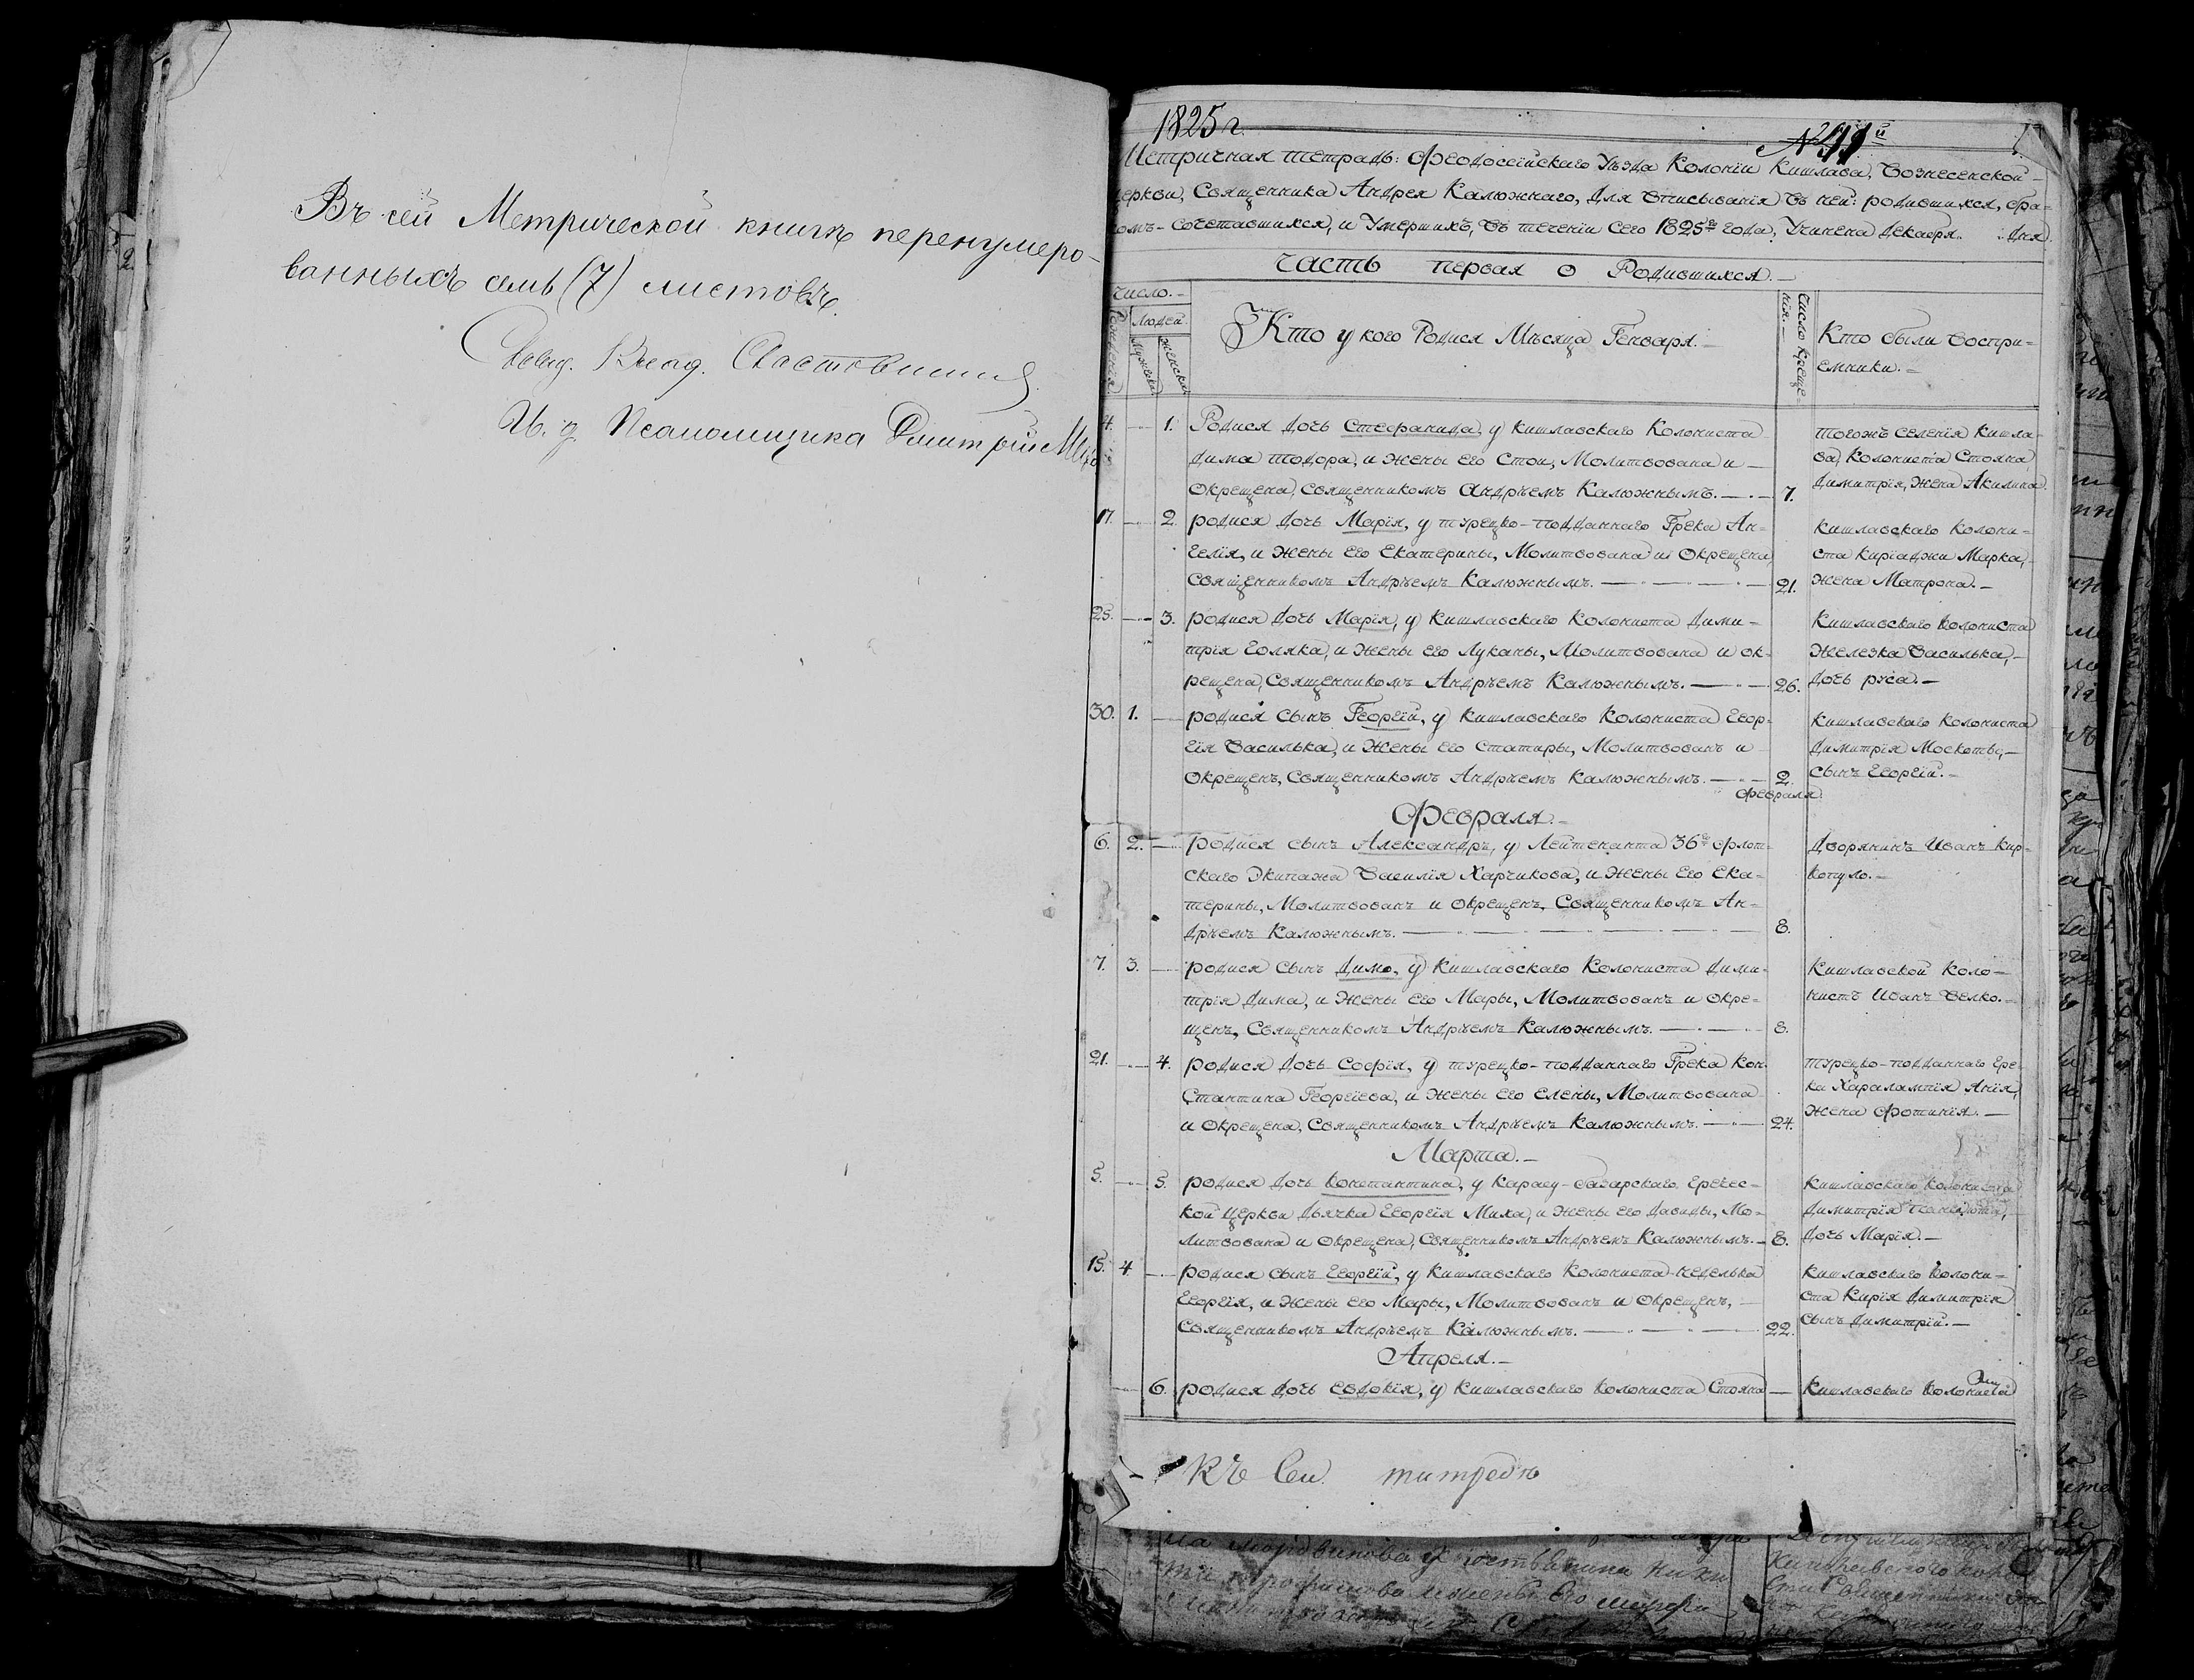 Въ сей Метрической книгѣ перенумеро-
ванныхъ семь (7) листовъ.
И. д. Псаломщика Дмитрій
1825 г.
Метричная тетрадь: Феодосейскаго Уѣзда Колоніи Кишлава, Вознесенской
церкви, Священника Андрея Калюжнаго, для вписыванія въ ней: родившихся, бра-
комъ-сочетавшихся, и Умершихъ, въ теченіи сего 1825го года, Учинена Декабря. Дня
Часть первая о Родившихся.
Число.
Рожденія
Людей.
Мужеска
Женска
Кто у кого Родися Мѣсяца Генваря.
Число Креще-
нія.
Кто были Воспри-
емники.
4. 1. Родися дочь Стефанида, у Кишлавскаго Колониста
Дима Тодора, и Жены Его Стои, Молитвована и
Окрещена, Священникомъ Андрѣемъ Калюжнымъ. 7.
тогожъ селенія Кишла-
ва, Колониста Стояна
Димитрія, Жена Акилина.
17. 2. родися дочь Марія, у турецко-подданнаго Грека Ан-
гелія, и Жены Его Екатерины, Молитвована и Окрещена,
Священникомъ Андрѣемъ Калюжнымъ. 21.
Кишлавскаго Колони-
ста Киріаджи Марка,
жена Матрона.
25. 3. родися дочь Марія, у Кишлавскаго Колониста Дими-
трія Голяка, и Жены его Луканы, Молитвована и ок-
рещена, Священникомъ Андрѣемъ Калюжнымъ. 26.
Кишлавскаго Колониста
Железка Василька,
дочь руса.
30. 1. родися сынъ Георгій, у Кишлавскаго Колониста Геор-
гія Василька, и Жены его Статиры, Молитвованъ и
Окрещенъ, Священникомъ Андрѣемъ Калюжнымъ. 2.
Февраля.
Кишлавскаго Колониста
Димитрія Москоты,
сынъ Георгій.
Февраля.
6. 2. родися сынъ Александръ, у Лейтенанта 36го флот-
скаго Экипажа Василія Харчикова, и Жены Его Ека-
терины, Молитвованъ и Окрещенъ, Священникомъ Ан-
дрѣемъ Калюжнымъ. 8.
Дворянинъ Иванъ Кир-
копуло.
7. 3. родися сынъ Димо, у Кишлавскаго Колониста Дими-
трія Дима, и Жены его Мары, Молитвованъ и Окре-
щенъ, Священникомъ Андрѣемъ Калюжнымъ. 8.
Кишлавской Коло-
нистъ Иванъ Велко.
21. 4. родися дочь Софія, у турецко-подданнаго Грека Кон-
стантина Георгіева, и Жены Его Елены, Молитвована
и Окрещена, Священникомъ Андрѣемъ Калюжнымъ. 24.
турецко-подданнаго Гре-
ка Харалампія Анія,
Жена Фотинія.
Марта.
5. 5. родися дочь Константина, у Карасу-базарскаго Гречес-
кой Церкви Дьячка Георгія Миха, и Жены Его Давиды, Мо-
литвована и Окрещена, Священникомъ Андрѣемъ Калюжнымъ. 8.
Кишлавскаго Колониста
Димитрія
дочь Марія.
15. 4. родися сынъ Георгій, у Кишлавскаго Колониста Неделька
Георгія, и Жены Его Мары, Молитвованъ и Окрещенъ,
Священникомъ Андрѣемъ Калюжнымъ. 22.
Кишлавскаго Колони-
ста Кирія Димитрія
сынъ Димитрій.
Апреля.
6. родися дочь Евдокія, у Кишлавскаго Колониста Стояна
Кишлавскаго Колониста
Къ Сей